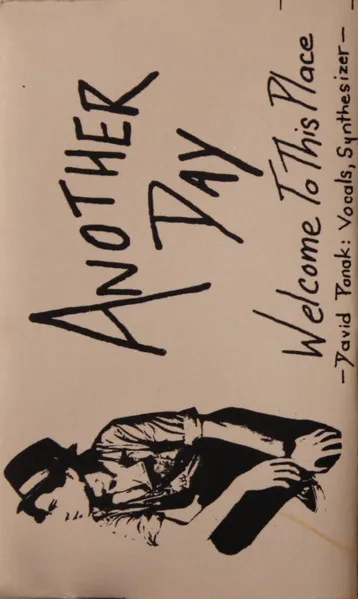 ANOTHER
DAY
Welcome To This Place
-David Ponak: Vocals, Synthesizer-